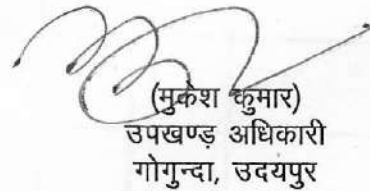 (मुकेश कुमार)
उपखण्ड़ अधिकारी
गोगुन्दा, उदयपुर